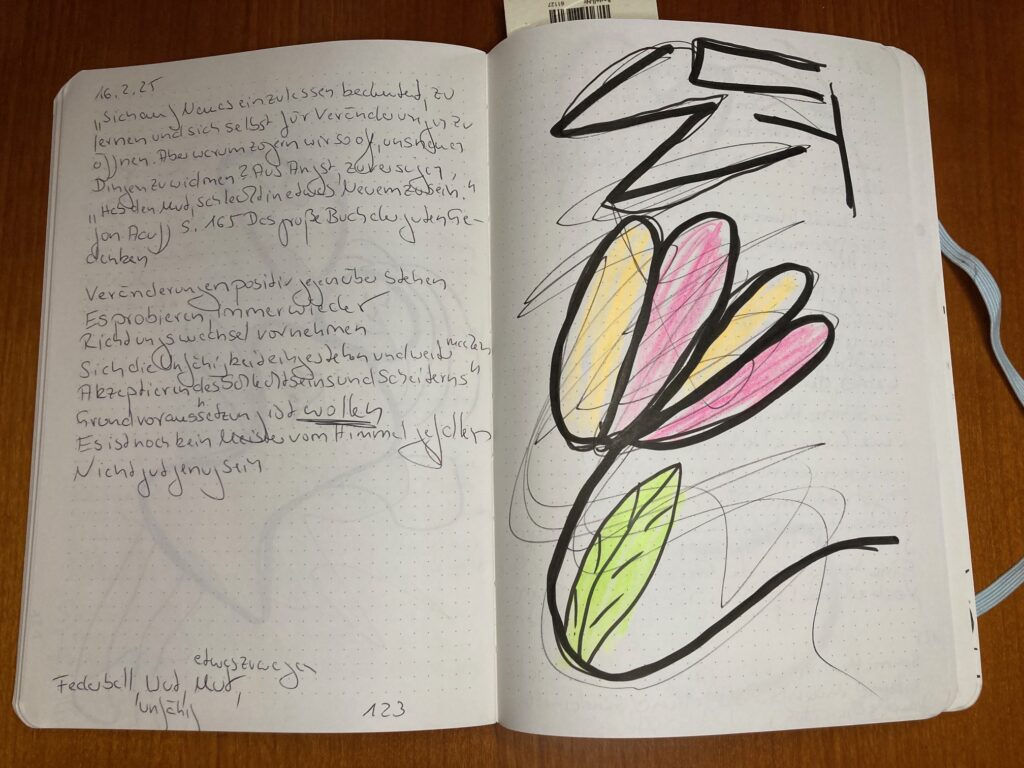 16.2.25
„Sich auf Neues einzulassen bedeutet, zu
lernen und sich selbst für Veränderungen zu
öffnen. Aber warum zögern wir so oft, uns neuen
Dingen zu widmen? Aus Angst, zu versagen,
„Hab den Mut, schlecht in etwas Neuem zu sein."
Jon Acuff S. 165 Das große Buch der guten Ge-
danken
Veränderungen positiv gegenüber stehen
Es probieren immer wieder
Richtungswechsel vornehmen
Sich die Unfähigkeit eingestehen und weiter machen
Akzeptieren des Schlechtseins und Scheiterns"
Grundvoraussetzung ist wollen
Es ist noch kein Meister vom Himmel gefallen
Nicht gut genug sein
etwas zu wagen
Federball, Wut, Mut,
unfähig
123
61127